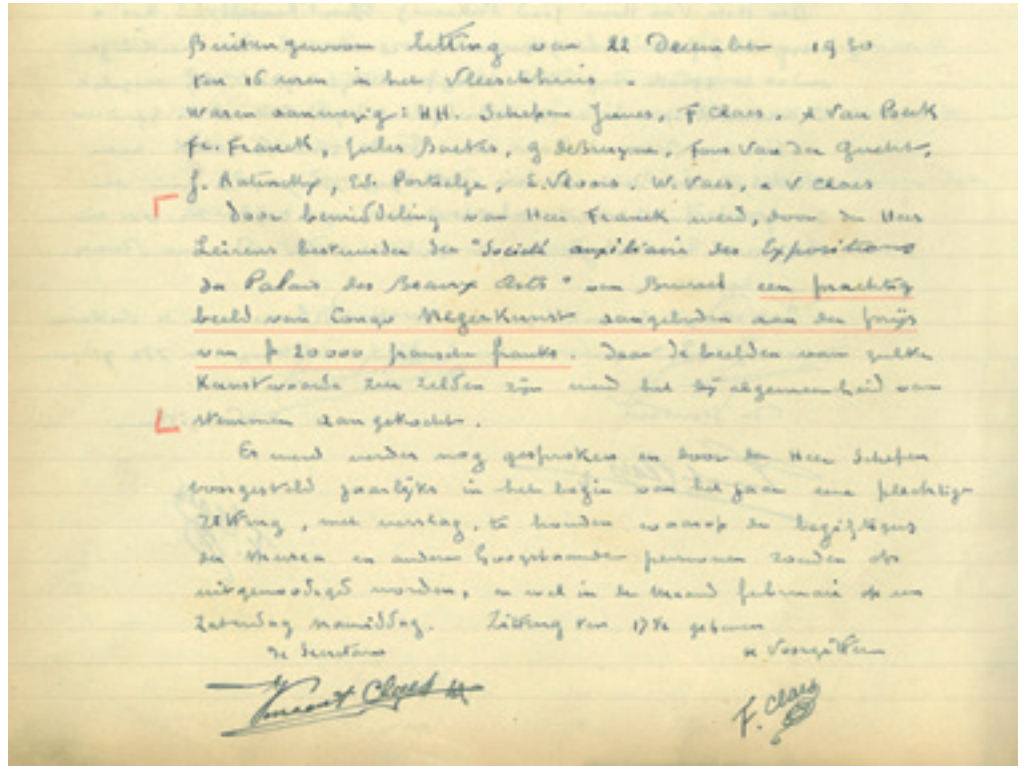 Buitengewoon zitting van 22 December 1930
ten 16 uren in het Vleeschhuis.
Waren aanwezig: HH. Schepen Junes, F Claes, A Van Beek
Fr. Franck, Jules Baetes, g deBruyne, Fons Van der Gucht,
J. Ratinckx, Ed. Portielje, E. Vloors, W. Vaes, & V Claes
Door bemiddeling van Heer Franck werd, door den Heer
Leirens bestuurder der "Société auxiliaire des Expositions
du Palais des Beaux Arts" van Brussel een prachtig
beeld van Congo Negerkunst aangeboden aan den prijs
van 20000 fransche franks. Daar de beelden van zulke
Kunstwaarde zeer zelden zijn werd het bij algemeenheid van
stemmen aangekocht.
Er werd verder nog gesproken en door den Heer Schepen
voorgesteld jaarlijks in het begin van het jaar eene plechtige
zitting, met verslag, te houden waarop de begiftigers
der Musea en andere hoogstaande personen zouden
uitgenoodigd worden, en wel in de Maand februari op een
Zaterdag namiddag. Zitting ten 17½ geheven
de Secretaris de Voorzitter
Vincent Claes F. Claes